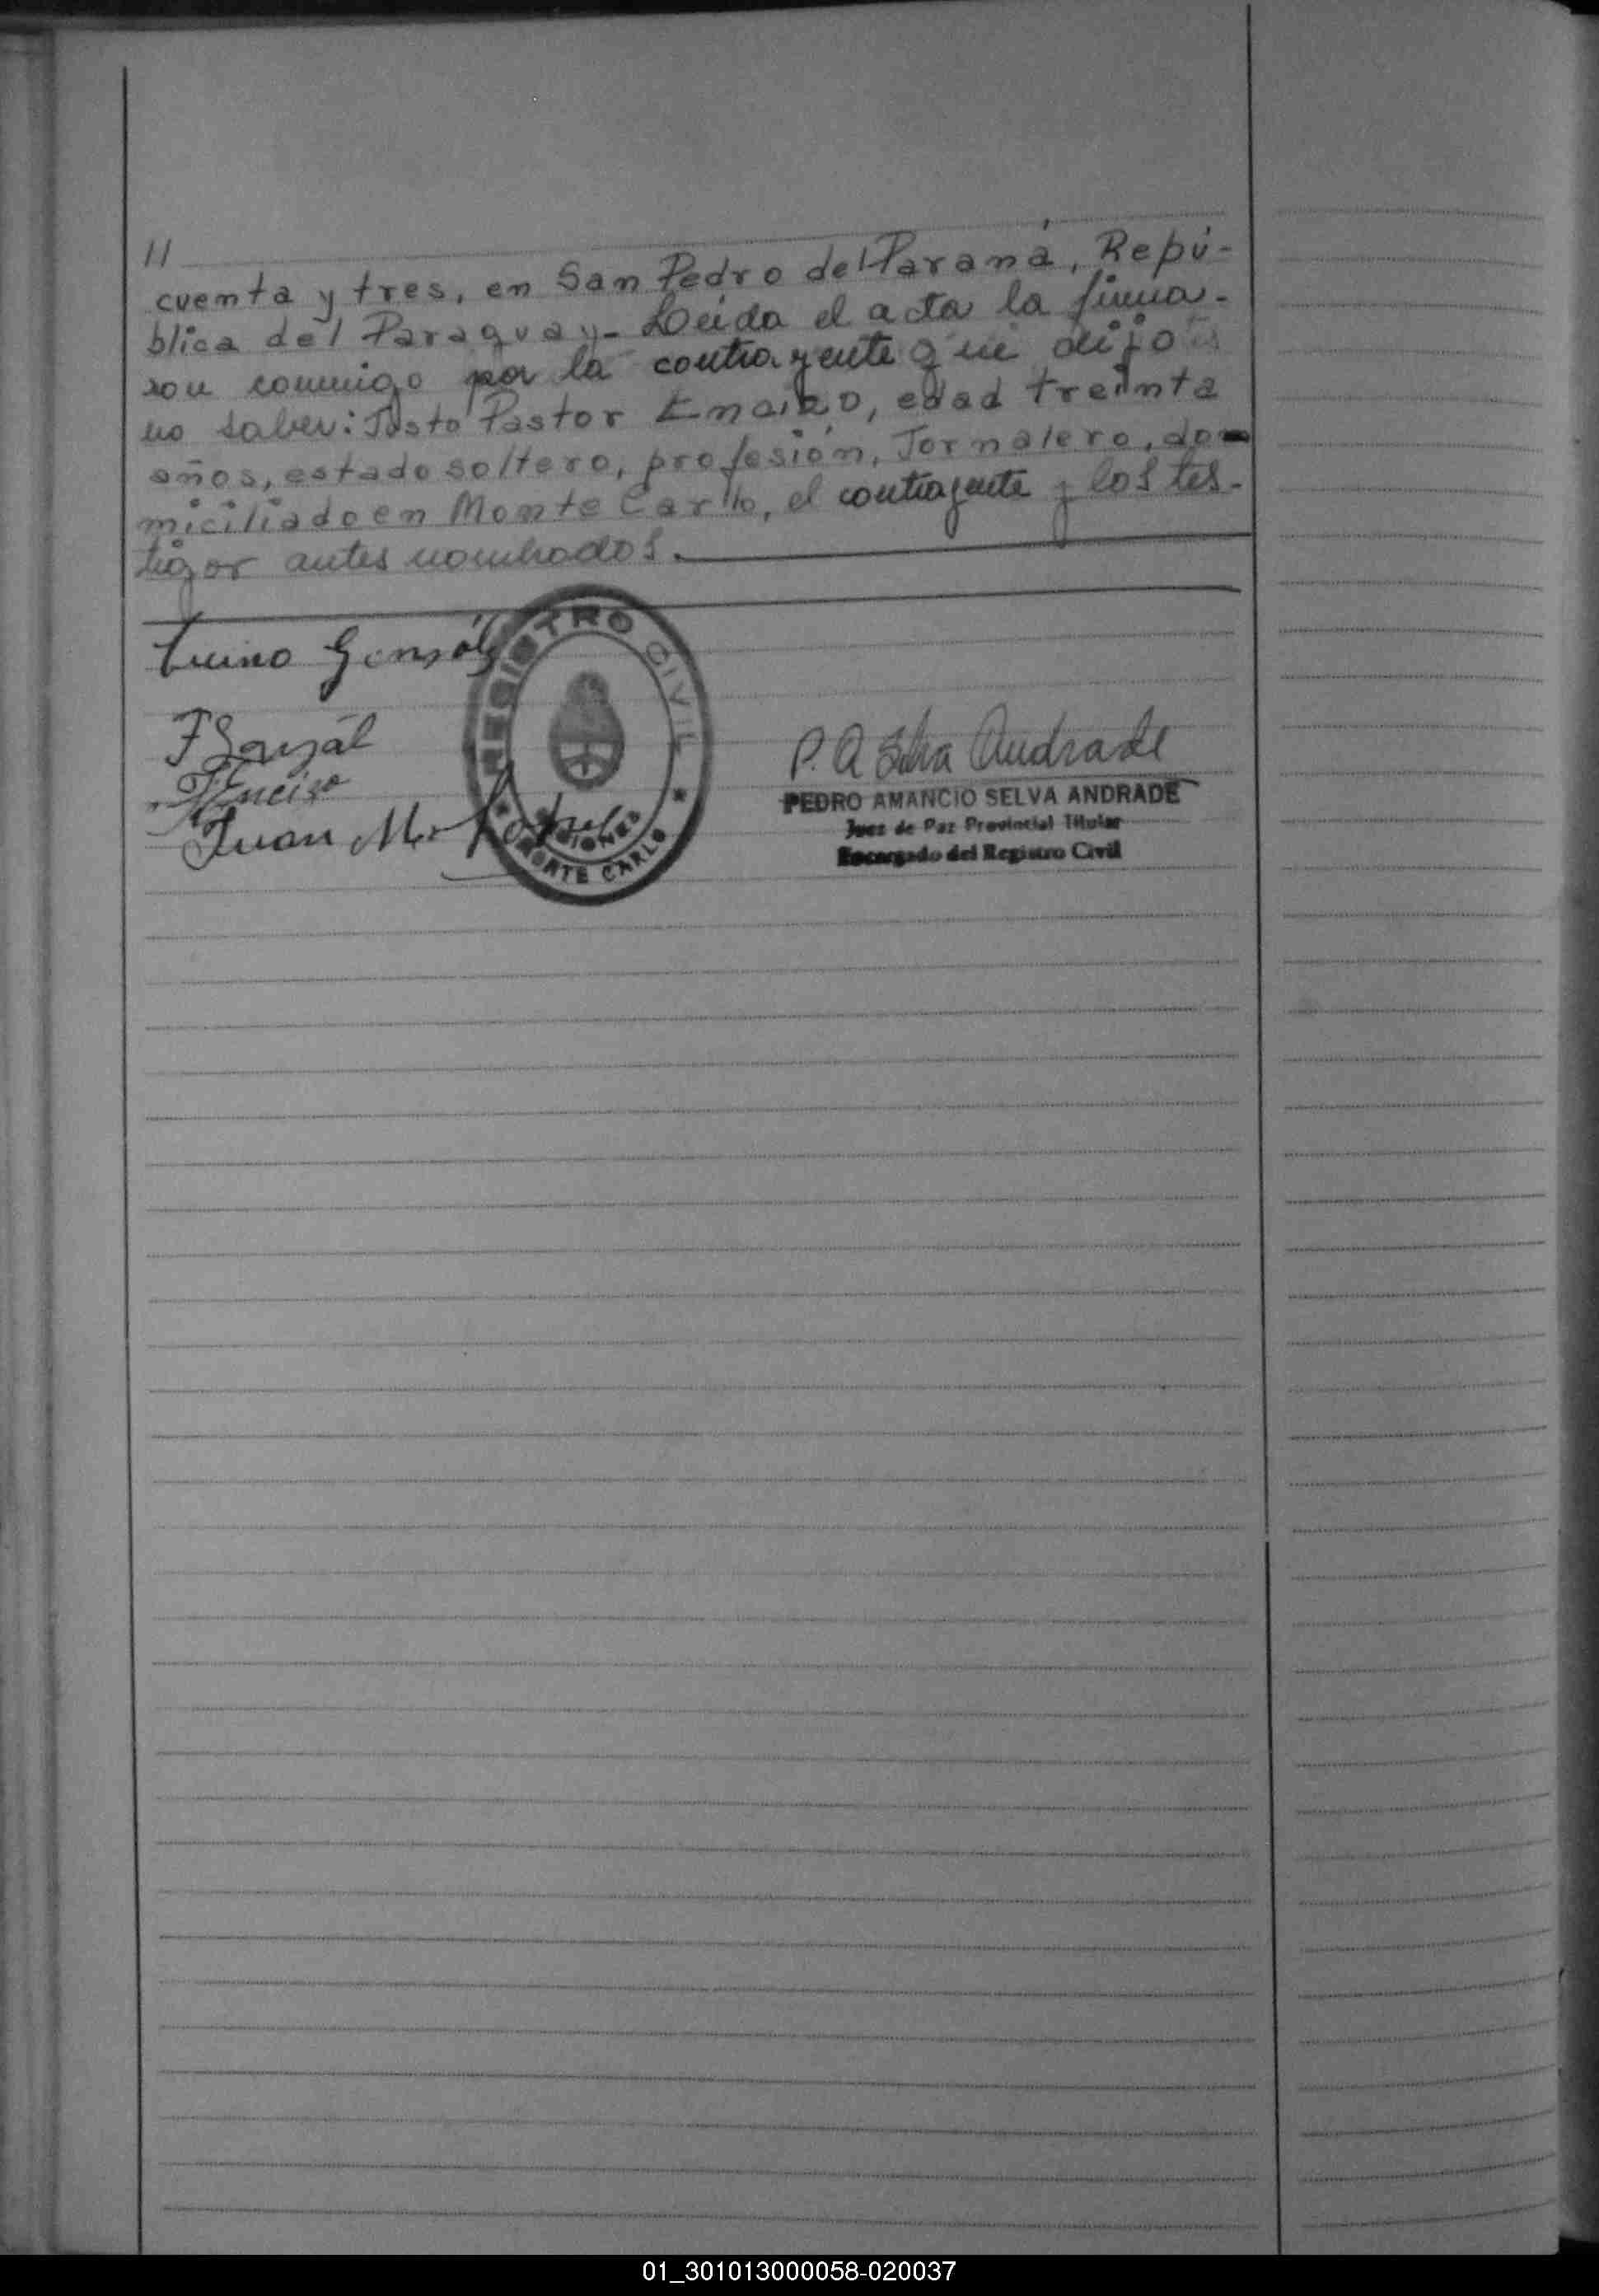 //
cuenta y tres, en San Pedro del Paraná, Repú-
blica del Paraguay.- Leída el acta la firma-
ron conmigo por la contrayente que dijo
no saber: Justo Pastor Enciso, edad treinta
años, estado soltero, profesión, Jornalero, do-
miciliado en Monte Carlo, el contrayente y los tes-
tigos antes nombrados.
González
REGISTRO CIVIL
MISIONES
MONTE CARLO
F González
Enciso
Juan M.
P. A Selva Andrade
PEDRO AMANCIO SELVA ANDRADE
Juez de Paz Provincial Titular
Encargado del Registro Civil
01_301013000058-020037